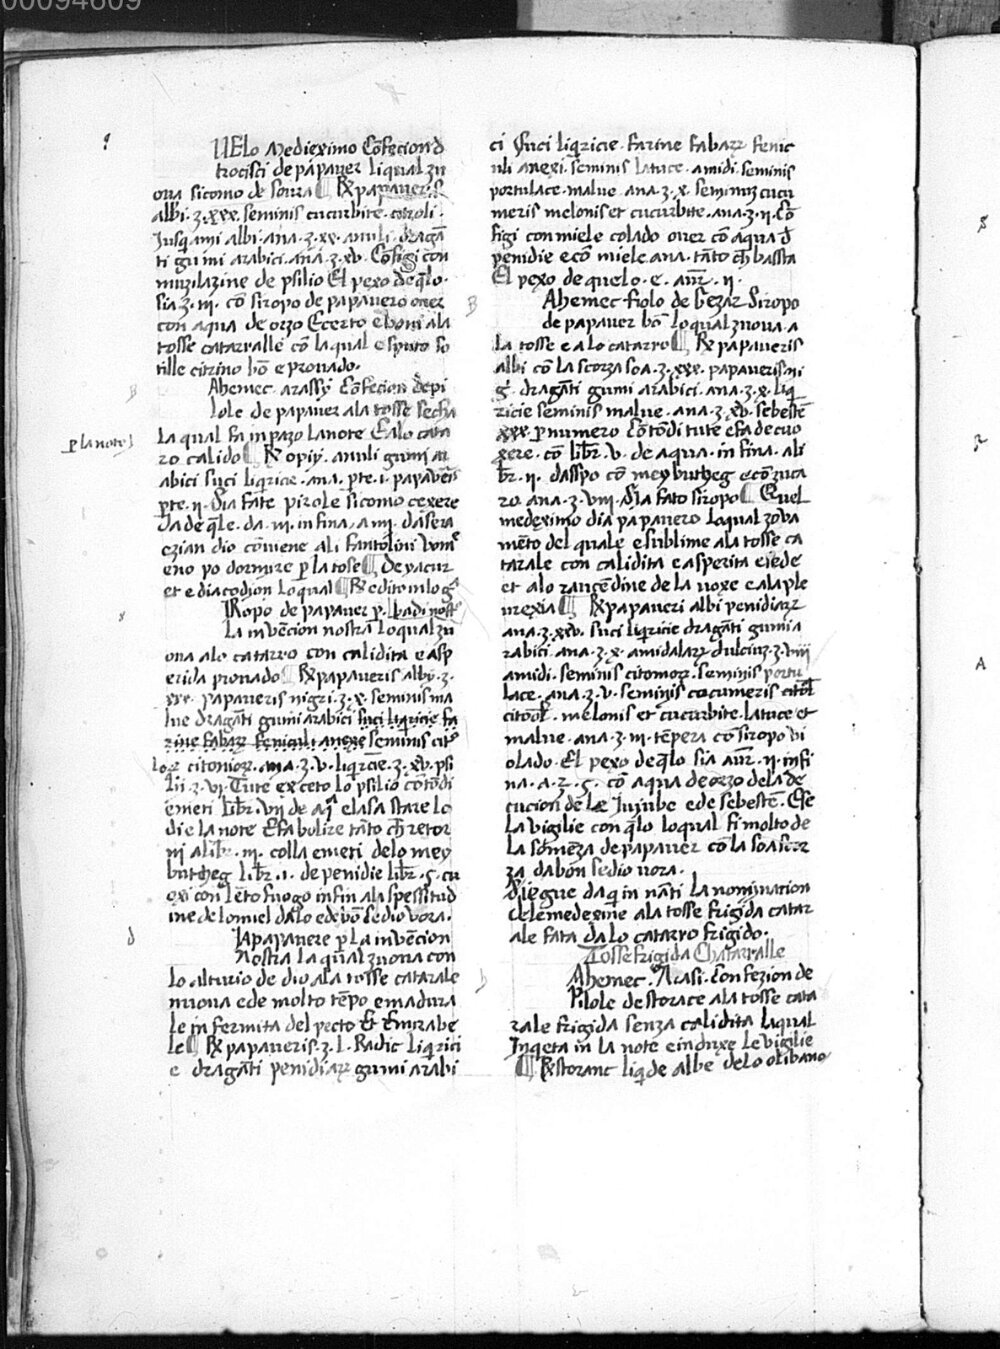 00094609
NElo Medieximo Cōfeciond
trocisci de papauer liqual zu
oua sicomo de soura ¶ ℞ papaueris
albi .ʒ.xxx. seminis cucurbite. citroli.
Jusqiami albi. ana .ʒ.xx. amili dragā
ti gumi arabici. ana .ʒ.xv. Cōfigi con
muzilazine de psilio El pexo de q̄lo.
sia .ʒ.iii. cō siropo de papauero ouer
con aqua de orzo E certo e boni ala
tosse catarralle cō la qual e sputo so
tille citrino bō e prouado.
Ahemec arassy Cōfecion de pi
lole de papauer ala tosse secha
La qual fa inpazo la note E alo cata
p̱ la note
ro calido ¶ ℞ opiy. amili gumi ar
abici suci liqricie. ana. pte .i. papaueris
pte .ii. Sia fate pirole sicomo cexere
da de q̄le. da .iii. in fina. a .iiii. da sera
ezian dio cōuiene ali fantolini
eno po dormire p̱ la tose ¶ De yacur
et e diacodion loqual ¶ ℞ edito in lo
SIropo de papauer p̱. la di nost̄
La inuēcion nostra Loqual zu
oua alo catarro con calidita e asp
erida prouado ¶ ℞ papaueris alby .ʒ.
xxx. papaueris nigri .ʒ.x. seminis ma
lue dragāti gumi arabici suci liqricie fa
rine fabarꝝ feniculi anexe seminis cit
lorꝝ citoniorꝝ. ana .ʒ.v. liqricie .ʒ.xv. psi
lii .ʒ.vi. Tute exceto lo psilio cōtōdi
emeti libr̄ .vii de aq̄ e lasa stare lo
die la note E fa bulire tāto ch̄ retor
ni a libr̄ .iii. colla emeti de lo mey
butheg libr̄ .i. de penidie libr̄ .s. cu
oxi con lēto fuogo infin ala spessitud
ine de lo miel dalo ede bōn se dio vora.
DIapapauere p̱ la inuencion
nostra La qual zuoua con
lo alturio de dio ala tosse catarale
nuoua e de molto tēpo e madura
le infermita del pecto Et E mirabe
le ¶ ℞ papaueris .ʒ.l. Radic liqrici
e dragāti penidiarꝝ gumi arabi
ci Suci liqricie. farine fabarꝝ fenic
uli anexi. seminis latuce. amidi. seminis
portulace. malue. ana .ʒ.x. seminis cucu
meris melonis et cucurbite. ana .ʒ.ii. Cō
figi con miele colado ouer cō aqua d̄
penidie e cō miele ana. tāto ch̄ bassta
El pexo de quelo. e. aur̄ .ii.
Ahemec fiolo de bezar Siropo
de papauer bō loqual zuoua. a
la tosse e alo catarro ¶ ℞ papaueris
albi cō la scorza soa .ʒ.xxx. papaueris ni
g̊. dragāti gumi arabici. ana .ʒ.x. liq̄
ricie seminis malue. ana .ʒ.xv. sebestē
xxx. p̱ numero Cōtōdi tute e fa de cuo
xere. cō libr̄ .v. de aqua. in fina. a li
br̄ .ii. dasspo cō mey butheg e cō zuca
ro. ana .ʒ.viii. Sia fato siropo ¶ Quel
medeximo dia papauero Loqual zoua
mēto del quale e sublime ala tosse ca
tarale con calidita e asperita e sede
et alo raucēdine de la voxe e ala ple
urexia ¶ ℞ papaueri albi penidiarꝝ
ana .ʒ.xxv. suci liqricie dragāti gumi a
rabici. ana .ʒ.x. amidalarꝝ dulciuȝ .ʒ.viii
amidi. seminis citoniorꝝ. seminis portu
lace. ana .ʒ.v. seminis cucumeris citōl
citrōl. melonis et cucurbite. latuce et
malue. ana .ʒ.iii. tēpera cō siropo vi
olado. El pexo de q̄lo sia aur̄ .ii. infi
na. a .2.s. cō aqua de orzo de la de
cucion de Le Jujube e de sebestē. Ese
La vigilie con q̄lo loqual si molto de
La somēza de papauer cō la soa scor
za da bōn se dio vora.
Siegue daq̄ in nāti La nomination
de le medexine ala tosse frigida catar
ale fata da lo catarro frigido.
Tosse frigida Chatarralle
Ahemec. Arasi. Confezion de
Pilole de storace ala tosse cata
rale frigida senza calidita laqual
Jnqeta in la note e induxe le vigilie
¶ ℞ storanc liq̄de albe de lo olibano